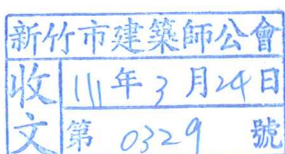 新竹市建築師公會
收文
111年3月24日
第 0329 號